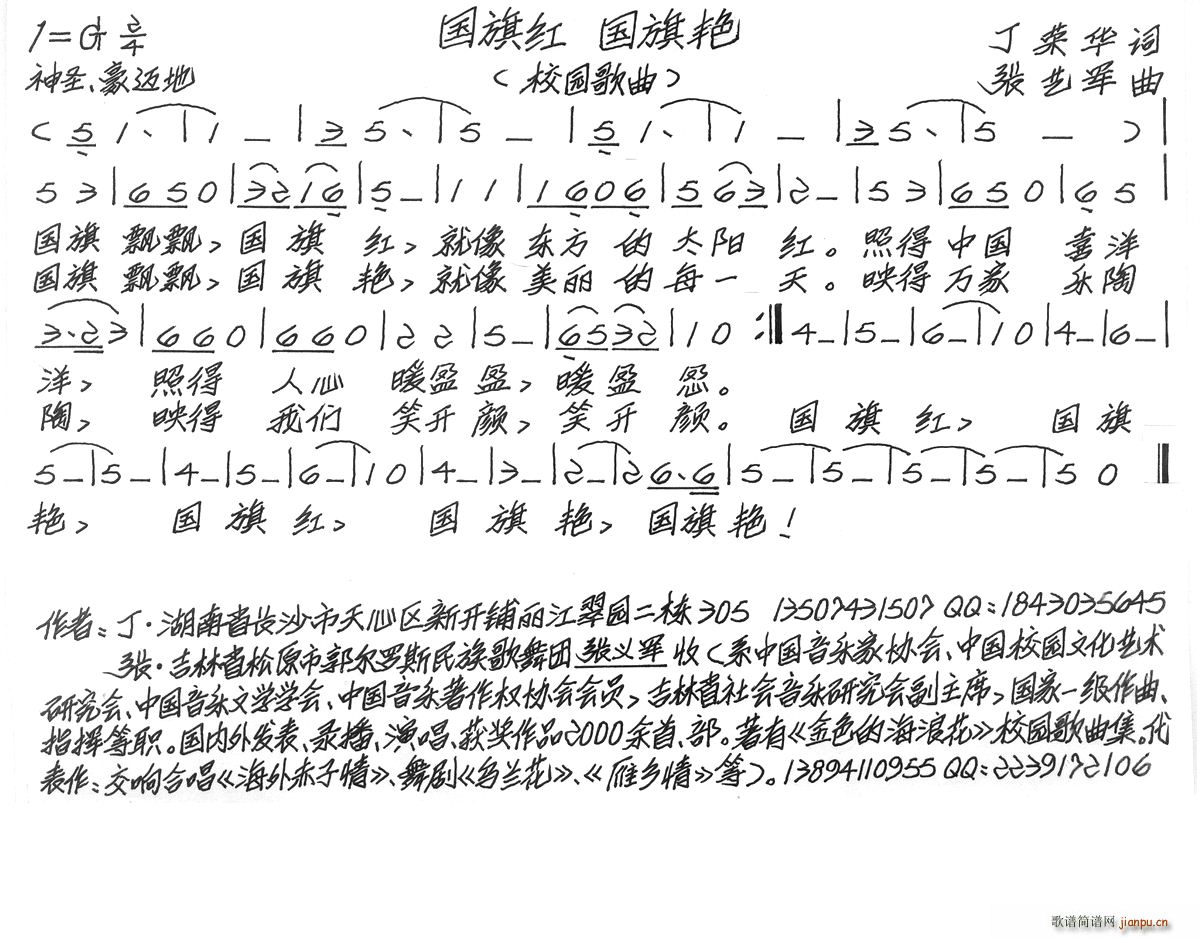 1=G 2/4 国旗红 国旗艳 丁荣华词
神圣、豪迈地 (校园歌曲) 张艺军曲
( 5 1、 | 1 — | 3 5、 | 5 — | 5 1、 | 1 — | 3 5、 | 5 — ) |
5 3 | 6 5 0 | 3 2 1 6 | 5 — | 1 1 | 1 6 0 6 | 5 6 3 | 2 — | 5 3 | 6 5 0 | 6 5 |
国旗 飘飘,国 旗 红,就像 东方 的 太阳 红。照得 中国 喜洋
国旗 飘飘,国 旗 艳,就像 美丽 的 每一 天。映得 万家 乐陶
3·2 3 | 6 6 0 | 6 6 0 | 2 2 | 5 — | 6 5 3 2 | 1 0 :‖ 4 — | 5 — | 6 — | 1 0 | 4 — | 6 — |
洋, 照得 人心 暖盈 盈,暖盈 盈。
陶, 映得 我们 笑开 颜,笑开 颜。 国 旗 红, 国 旗
5 — | 5 — | 4 — | 5 — | 6 — | 1 0 | 4 — | 3 — | 2 — | 2 6·6 | 5 — | 5 — | 5 — | 5 — | 5 0 ‖
艳, 国 旗 红, 国 旗 艳,国旗 艳!
作者:丁·湖南省长沙市天心区新开铺丽江翠园二栋305 13507431507 QQ:1843035645
张·吉林省松原市郭尔罗斯民族歌舞团张义军收(系中国音乐家协会、中国校园文化艺术
研究会、中国音乐文学学会、中国音乐著作权协会会员,吉林省社会音乐研究会副主席,国家一级作曲、
指挥等职。国内外发表、录播、演唱、获奖作品2000余首、部。著有《金色的海浪花》校园歌曲集。代
表作:交响合唱《海外赤子情》、舞剧《乌兰花》、《雁乡情》等)。13894110955 QQ:2239172106
歌谱简谱网 jianpu.cn